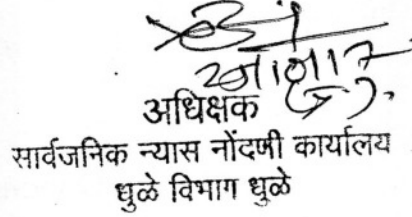 अधिक्षक
सार्वजनिक न्यास नोंदणी कार्यालय
धुळे विभाग धुळे